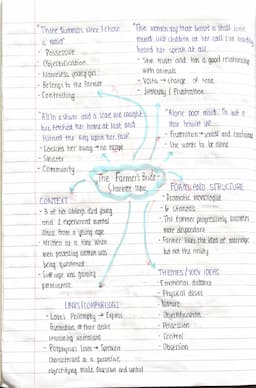 "Three Summers since I chose
a maid"
- Possessive
- Objectification
- Nameless young girl
- Belongs to the Farmer
- Controlling
"The women say that beasts in stall look
round like children at her call I've hardly
heard her speak at all.
- She trusts and has a good relationship
with animals
- Volta → change of tone
- Jealousy / Frustration
"All in a shiver and a scare we caught
her, fetched her home at last and
turned the key upon her fast"
- Locked her away → no escape
- Sinister
- Community
"Alone poor maid. Tis but a
stair betwixt us"
- Frustration → sexual and emotional
- She wants to be alone
The Farmer's Bride -
Charlotte Mew
CONTEXT
- 3 of her siblings died young
and 2 experienced mental
illness from a young age
- Written at a time when
men possessing women was
being questioned
- Suffrage was gaining
FORM AND STRUCTURE
- Dramatic monologue
- 6 stanzas
- The farmer progressively becomes
more desperate
- Farmer likes the idea of marriage
but not the reality
THEMES / KEY IDEAS
- Emotional distance
- Physical desire
- Nature
- Objectification
- Possession
- Control
- Obsession
LINKS/COMPARISONS
- Love's Philosophy → Express
frustration at their desire
remaining unrealised
- Porphyria's Lover → Speakers
characterised as possessive,
objectifying, male, obsessive and control